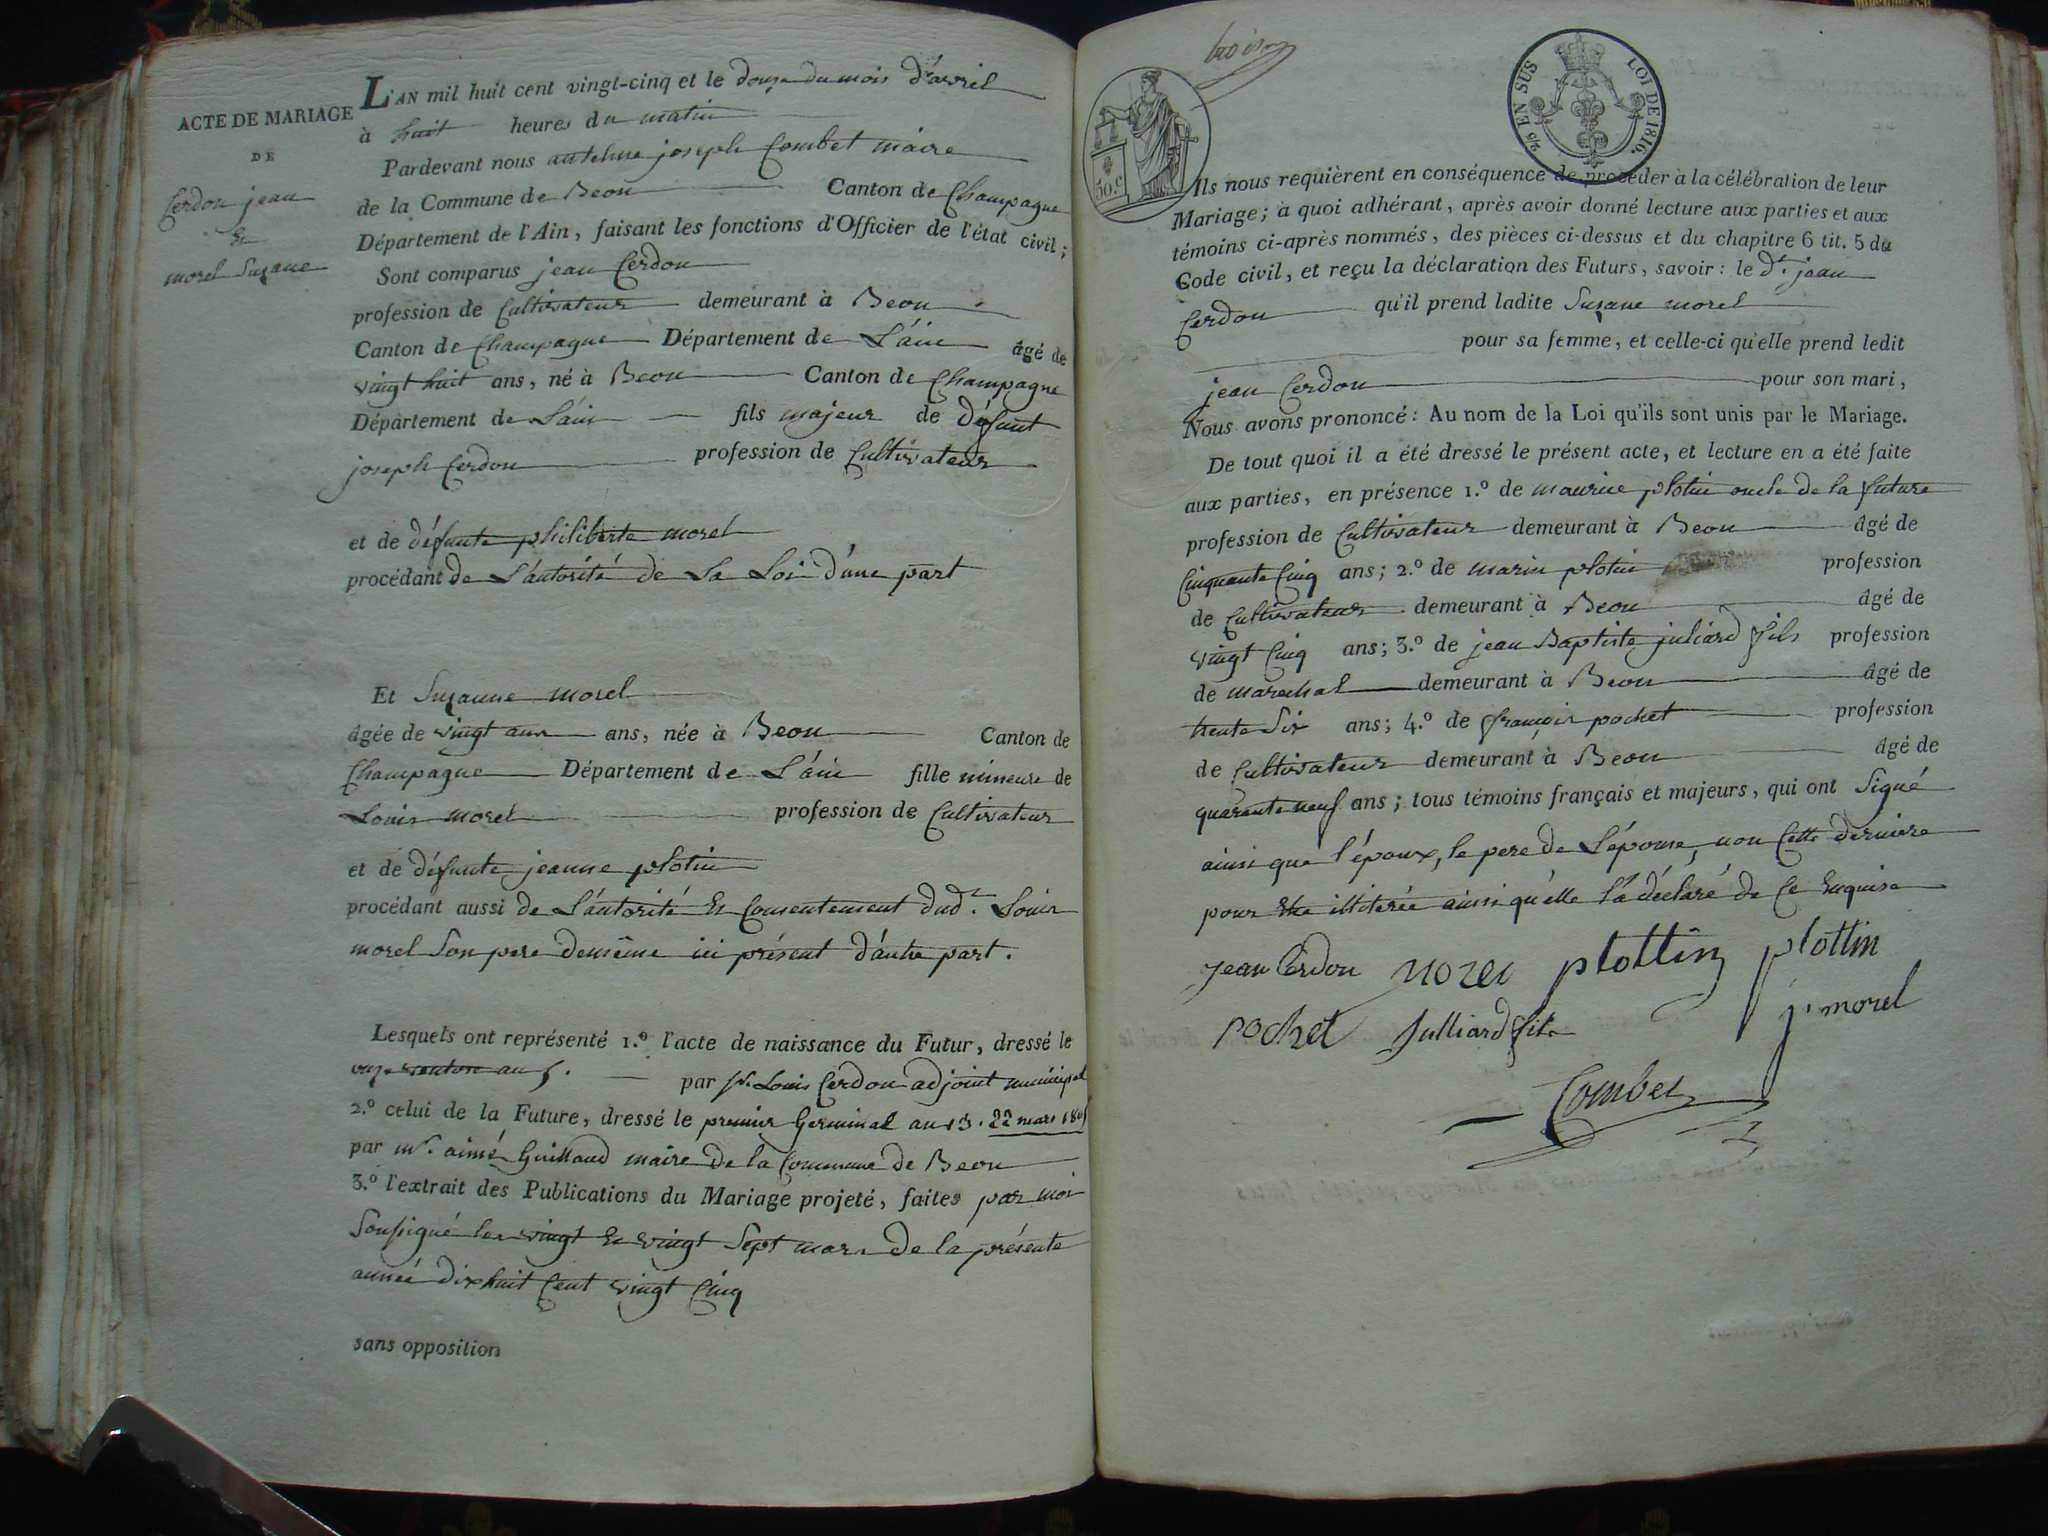 ACTE DE MARIAGE
DE
Cerdon jean
Et
morel Suzane
L'AN mil huit cent vingt-cinq et le douze du mois d'avril
à huit heures du matin
Pardevant nous antelme joseph Combet maire
de la Commune de Beon Canton de Champagne
Département de l'Ain, faisant les fonctions d'Officier de l'état civil;
Sont comparus jean Cerdon
profession de Cultivateur demeurant à Beon
Canton de Champagne Département de L'ain âgé de
vingt huit ans, né à Beon Canton de Champagne
Département de L'ain fils majeur de défunt
joseph Cerdon profession de Cultivateur
et de défunte philiberte morel
procédant de L'autorité de La Loi d'une part
Et Suzanne morel
âgée de vingt ans ans, née à Beon Canton de
Champagne Département de L'ain fille mineure de
Louis morel profession de Cultivateur
et de défunte jeanne plotin
procédant aussi de L'autorité Et Consentement dud.t Louis
morel Son pere demême ici présent d'autre part.
Lesquels ont représenté 1.º l'acte de naissance du Futur, dressé le
onze ventose an 5. par Louis Cerdon adjoint municipal
2.º celui de la Future, dressé le premier Germinal an 13. 22 mars 1805
par m.r aimé Guillaud maire de la Commune de Beon
3.º l'extrait des Publications du Mariage projeté, faites par moi
Soussigné les vingt Et vingt Sept mars de la présente
année dix huit Cent vingt Cinq
sans opposition
50.C
2/5 EN SUS LOI DE 1816.
Ils nous requièrent en conséquence de procéder à la célébration de leur
Mariage; à quoi adhérant, après avoir donné lecture aux parties et aux
témoins ci-après nommés, des pièces ci-dessus et du chapitre 6 tit. 5 du
Code civil, et reçu la déclaration des Futurs, savoir: le d.t jean
Cerdon qu'il prend ladite Suzane morel
pour sa femme, et celle-ci qu'elle prend ledit
jean Cerdon pour son mari,
Nous avons prononcé: Au nom de la Loi qu'ils sont unis par le Mariage.
De tout quoi il a été dressé le présent acte, et lecture en a été faite
aux parties, en présence 1.º de maurice plotin oncle de la future
profession de Cultivateur demeurant à Beon âgé de
Cinquante Cinq ans; 2.º de marin plotin profession
de Cultivateur demeurant à Beon âgé de
vingt Cinq ans; 3.º de jean Baptiste juliard fils profession
de marechal demeurant à Beon âgé de
trente Six ans; 4.º de françois pochet profession
de Cultivateur demeurant à Beon âgé de
quarante neuf ans; tous témoins français et majeurs, qui ont Signé
ainsi que l'époux, le pere de L'épouse, non Cette derniere
pour Etre illiterée ainsi qu'elle l'a déclaré de Ce Enquise
jean Cerdon morel plottin plottin
pochet Julliard fils j. morel
Combet